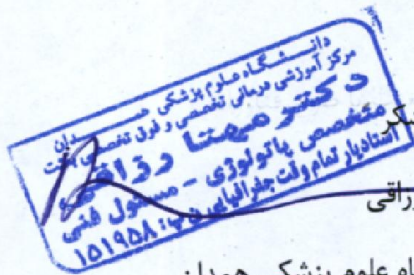 دانشگاه علوم پزشکی همدان
مرکز آموزشی درمانی تخصصی و فوق تخصصی بعثت
دکتر مهتا رزاقی
متخصص پاتولوژی - مسئول فنی
استادیار تمام وقت جغرافیایی ن پ: ۱۵۱۹۵۸
شکر
زراقی
علوم پزشکی همدان